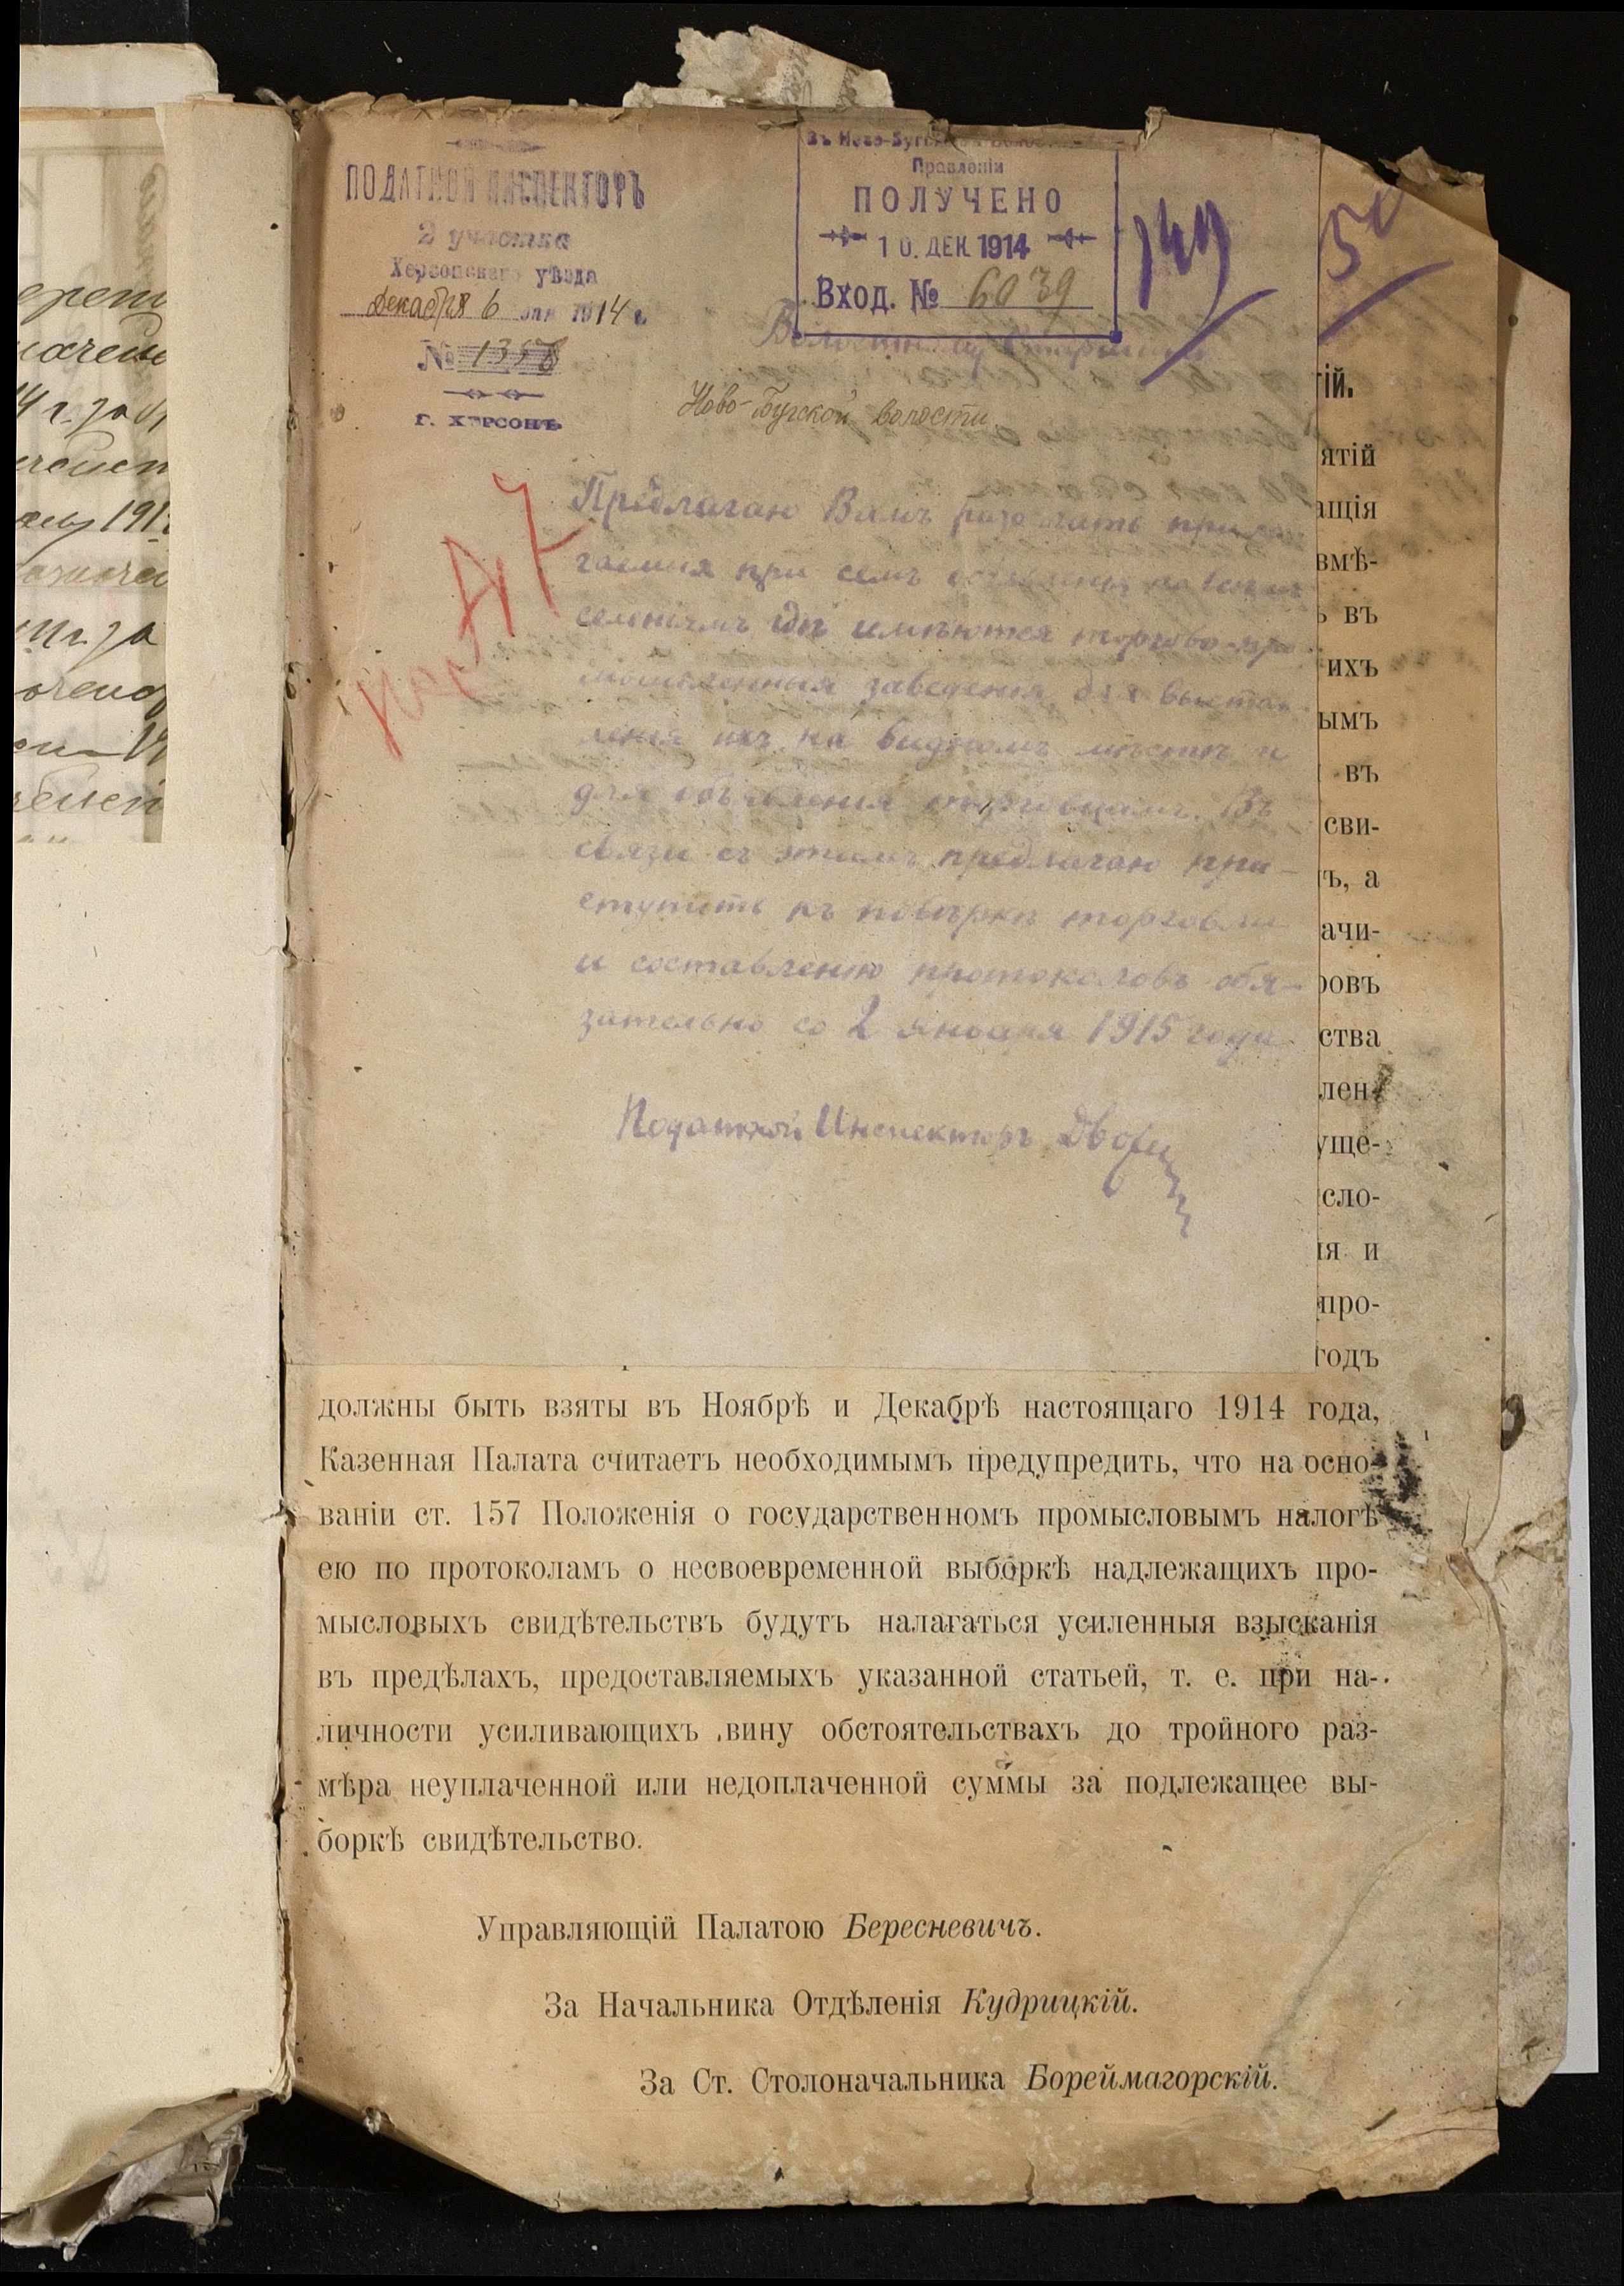 ПОДАТНОЙ ИНСПЕКТОРЪ
2 участка
Херсонскаго уѣзда
Декабря 6 дня 1914 г.
№ 1358
Г. ХЕРСОНЪ
Въ Ново-Бугском Волос
Правленіи
ПОЛУЧЕНО
10. ДЕК. 1914
Вход. № 6039
149
50
Волостному Старшинѣ
Ново-Бугской волости
Предлагаю Вамъ разослать прила-
гаемыя при семъ объявленія по всѣмъ
селеніямъ гдѣ имѣются торгово-про-
мышленныя заведенія, для выстав-
ленія ихъ на видномъ мѣстѣ и
для объявленія торговцамъ. Въ
связи съ этимъ предлагаю при-
ступить къ повѣркѣ торговли
и составленію протоколовъ обя-
зательно со 2 января 1915 года
Податной Инспекторъ
ій.
ятій
ащія
вмѣ-
въ
ихъ
ымъ
въ
сви-
ъ, а
ачи-
ровъ
ства
лен
уще-
сло-
ія и
про-
годъ
должны быть взяты въ Ноябрѣ и Декабрѣ настоящаго 1914 года,
Казенная Палата считаетъ необходимымъ предупредить, что на осно-
ваніи ст. 157 Положенія о государственномъ промысловымъ налогѣ
ею по протоколамъ о несвоевременной выборкѣ надлежащихъ про-
мысловыхъ свидѣтельствъ будутъ налагаться усиленныя взысканія
въ предѣлахъ, предоставляемыхъ указанной статьей, т. е. при на-
личности усиливающихъ вину обстоятельствахъ до тройного раз-
мѣра неуплаченной или недоплаченной суммы за подлежащее вы-
боркѣ свидѣтельство.
Управляющій Палатою Бересневичъ.
За Начальника Отдѣленія Кудрицкій.
За Ст. Столоначальника Бореймагорскій.